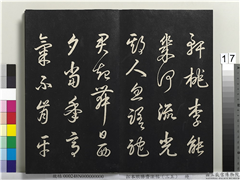 軒桃李能
幾何流光
欺人忽蹉跎
君起舞日西
夕當年意
氣不肯平
17